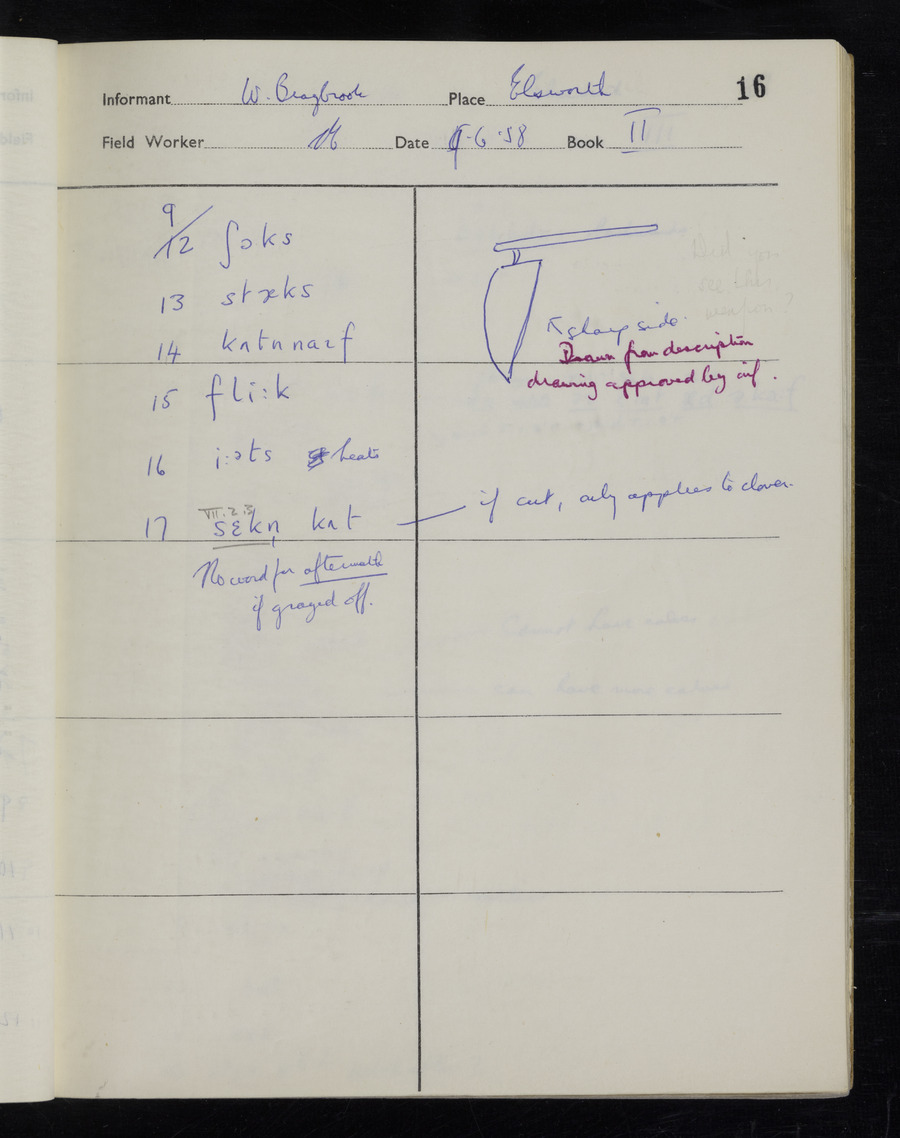 Informant W. Braybrook Place Elsworth 16
Field Worker Date 9.6.58 Book II
9/12 ʃɔks
13 stæks
14 kʌtnnaɪf
15 fliːk
16 iːəts heats
VII.2.3
17 sɛkn̩ kʌt — if cut, only applies to clover.
No word for aftermath
if grazed off.
Did you
see this
weapon?
↖ sharp side.
Drawn from description
drawing approved by inf.